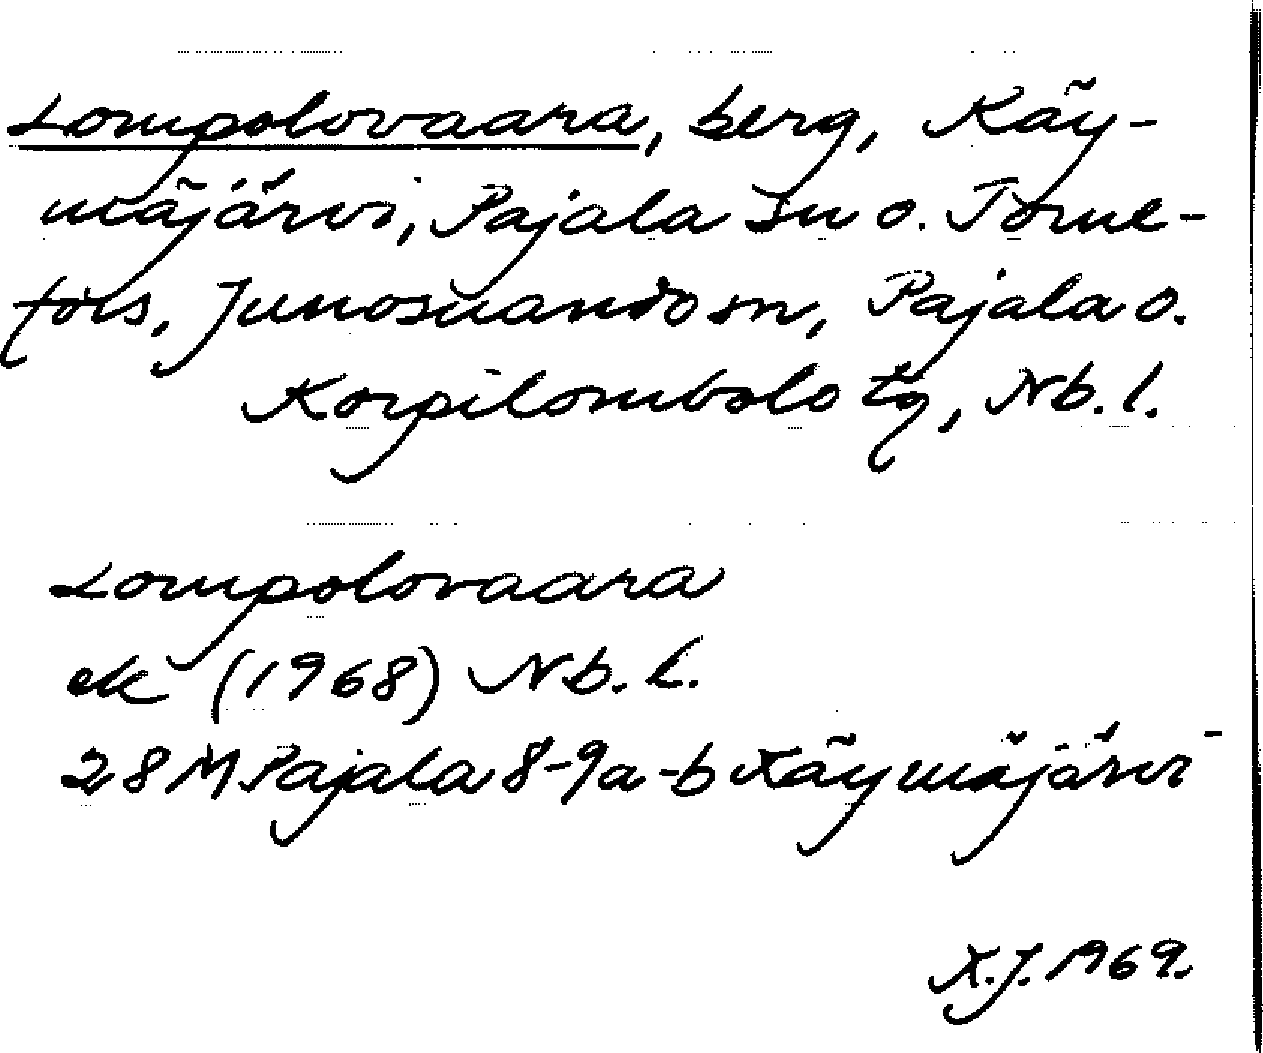 Lompolovaara, berg, Käy-
mäjärvi, Pajala sn o. Torne-
fors, Junosuando sn, Pajala o.
Korpilombolo tg, Nb. l.
Lompolovaara
ek (1968) Nb. l.
28 M Pajala 8-9a-b Käymäjärvi
K.J. 1969.